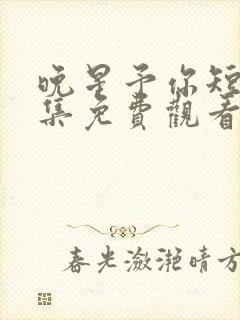 晚星予你短
集免費觀看
春光瀲滟晴方